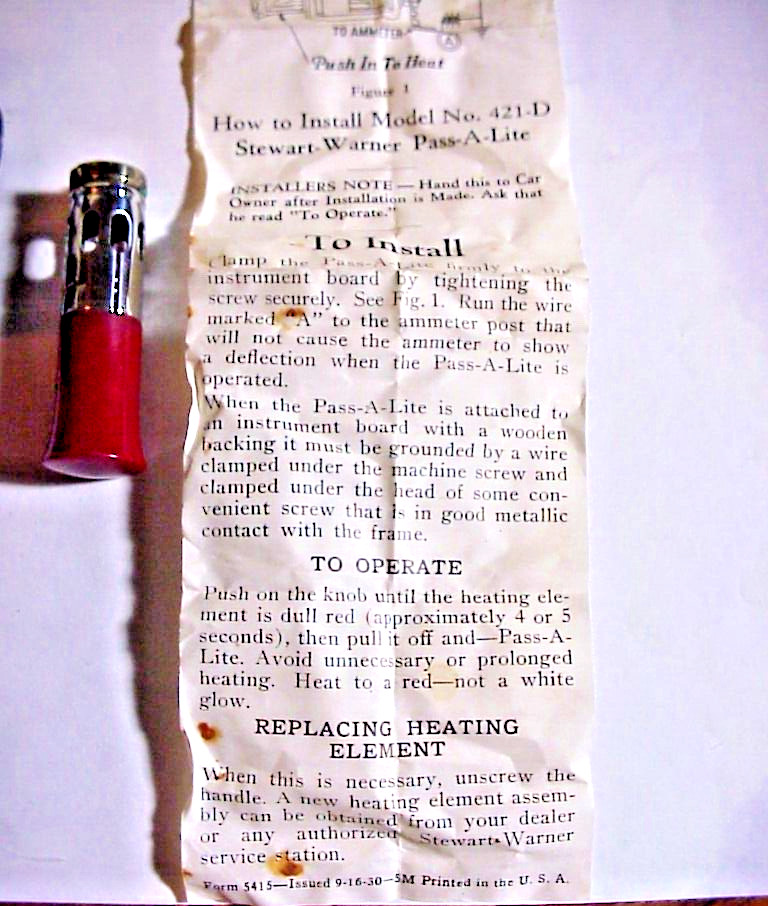 TO AMMETER
A
Push In To Heat
Figure 1
How to Install Model No. 421-D
Stewart-Warner Pass-A-Lite
INSTALLERS NOTE — Hand this to Car
Owner after Installation is Made. Ask that
he read "To Operate."
To Install
Clamp the Pass-A-Lite firmly to the
instrument board by tightening the
screw securely. See Fig. 1. Run the wire
marked "A" to the ammeter post that
will not cause the ammeter to show
a deflection when the Pass-A-Lite is
operated.
When the Pass-A-Lite is attached to
an instrument board with a wooden
backing it must be grounded by a wire
clamped under the machine screw and
clamped under the head of some con-
venient screw that is in good metallic
contact with the frame.
TO OPERATE
Push on the knob until the heating ele-
ment is dull red (approximately 4 or 5
seconds), then pull it off and—Pass-A-
Lite. Avoid unnecessary or prolonged
heating. Heat to a red—not a white
glow.
REPLACING HEATING
ELEMENT
When this is necessary, unscrew the
handle. A new heating element assem-
bly can be obtained from your dealer
or any authorized Stewart-Warner
service station.
Form 5415—Issued 9-16-30—5M Printed in the U. S. A.